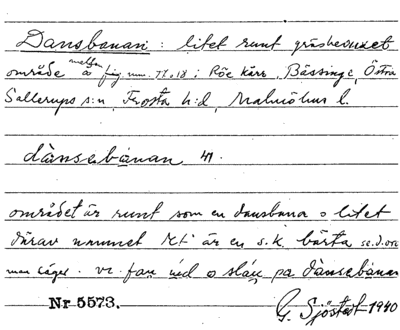 Dansbanan: litet runt gräsbevuxet
område mellan äg. num. 17 o 18 i Röe kärr, Bässinge, Östra
Sallerups s:n, Frosta h:d, Malmöhus l.
dànsebànan
området är runt som en dansbana o litet
därav namnet är en s.k. se d. o.
man säger vi far ud o slår pa dànsebànan
Nr 5573. G. Sjöstedt 1940